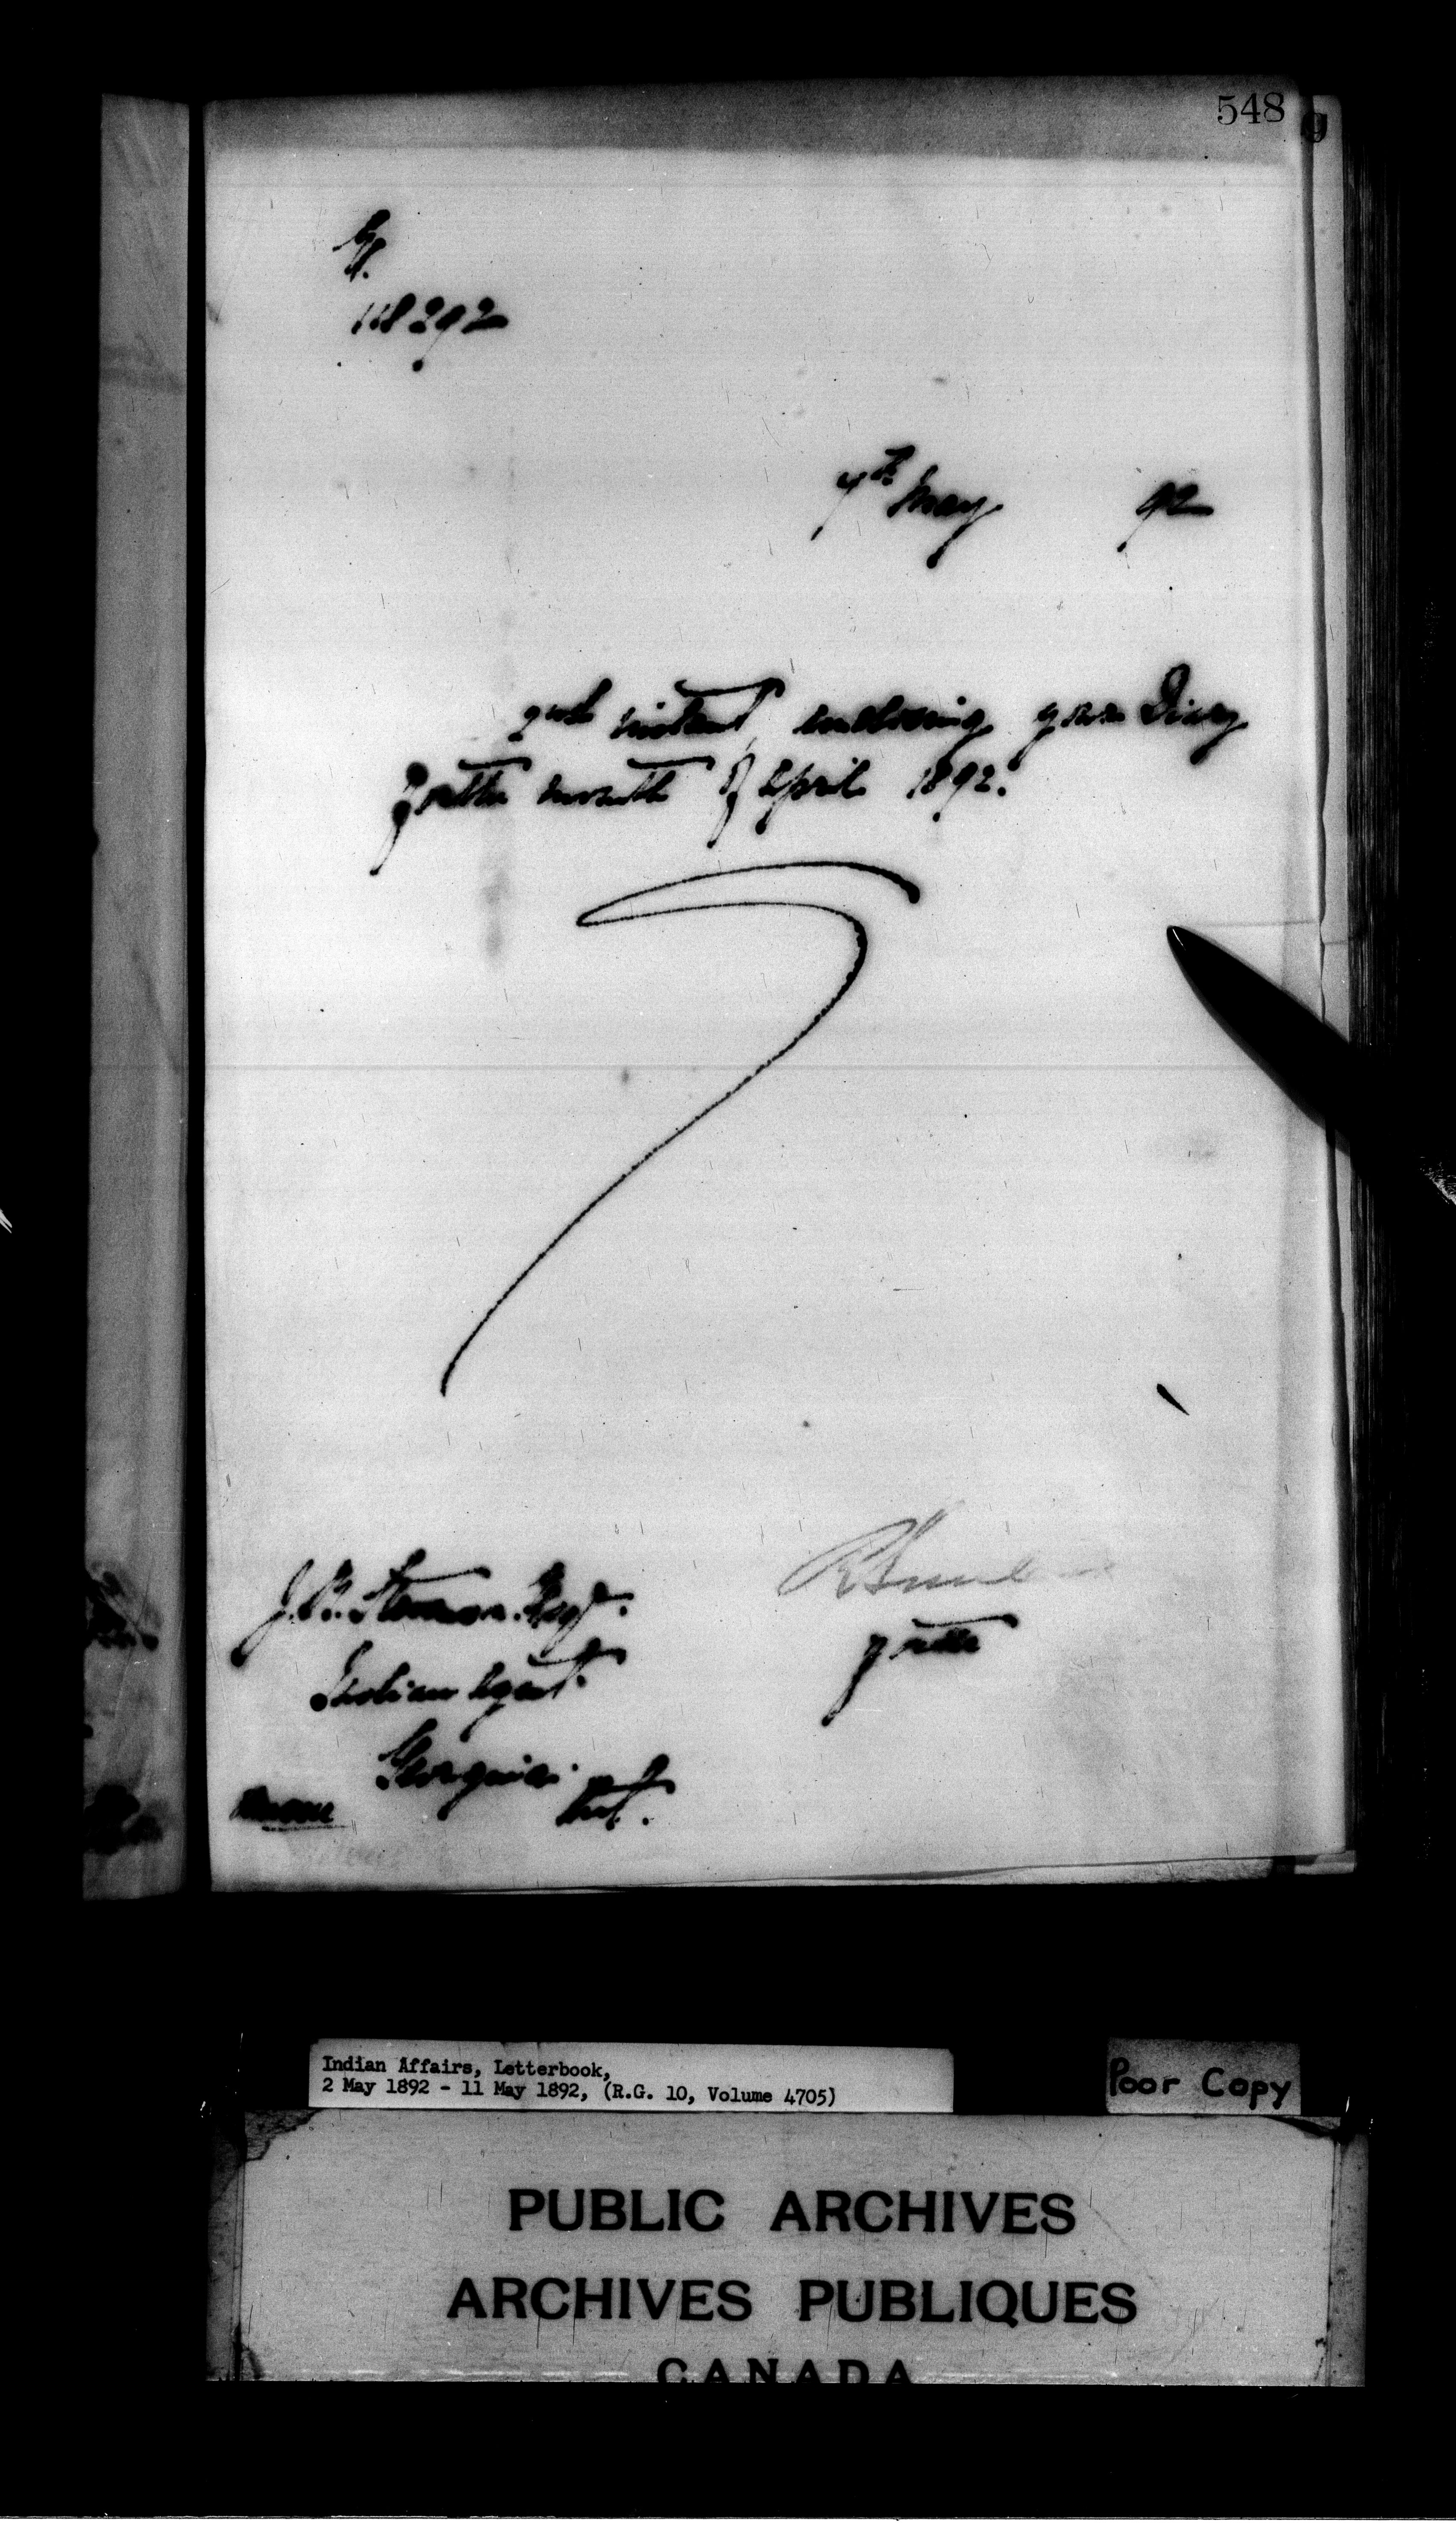 548
118292
7th May 92
2nd instant, enclosing your Diary
for the month of April 1892.
J. Stevenson. Esq.
for the
Indian Agent.
Georgina.
Ont.
Indian Affairs, Letterbook,
2 May 1892 - 11 May 1892, (R.G. 10, Volume 4705)
Poor Copy
PUBLIC ARCHIVES
ARCHIVES PUBLIQUES
CANADA